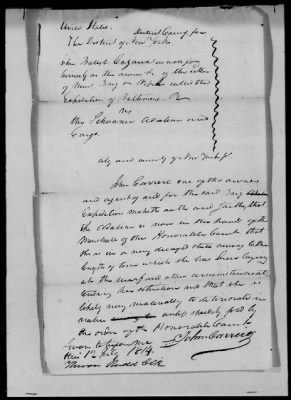 United States District Court for
The District of New York
John Baptist Cazeaux as well for
himself as the owners &c of the Letter
of Marque Brig or Vessel called the
Expedition of Baltimore
vs
The Schooner Adaline and
Cargo.
City and county of New York ss.
John Carrere one of the owners
and agent of and for the said Brig
Expedition maketh oath and saith, that
the Adaline is now in the hands of the
Marshal of this Honorable Court that
she is in a very decayed state owing to the
length of time which she has been laying
at the wharf and other circumstances
attending her detention and that she is
likely very materially to deteriorate in
value unless shortly sold by
the order of the Honorable Court.
Sworn before me
this 1st July 1814
John Carrere
Theron Rudd Clk